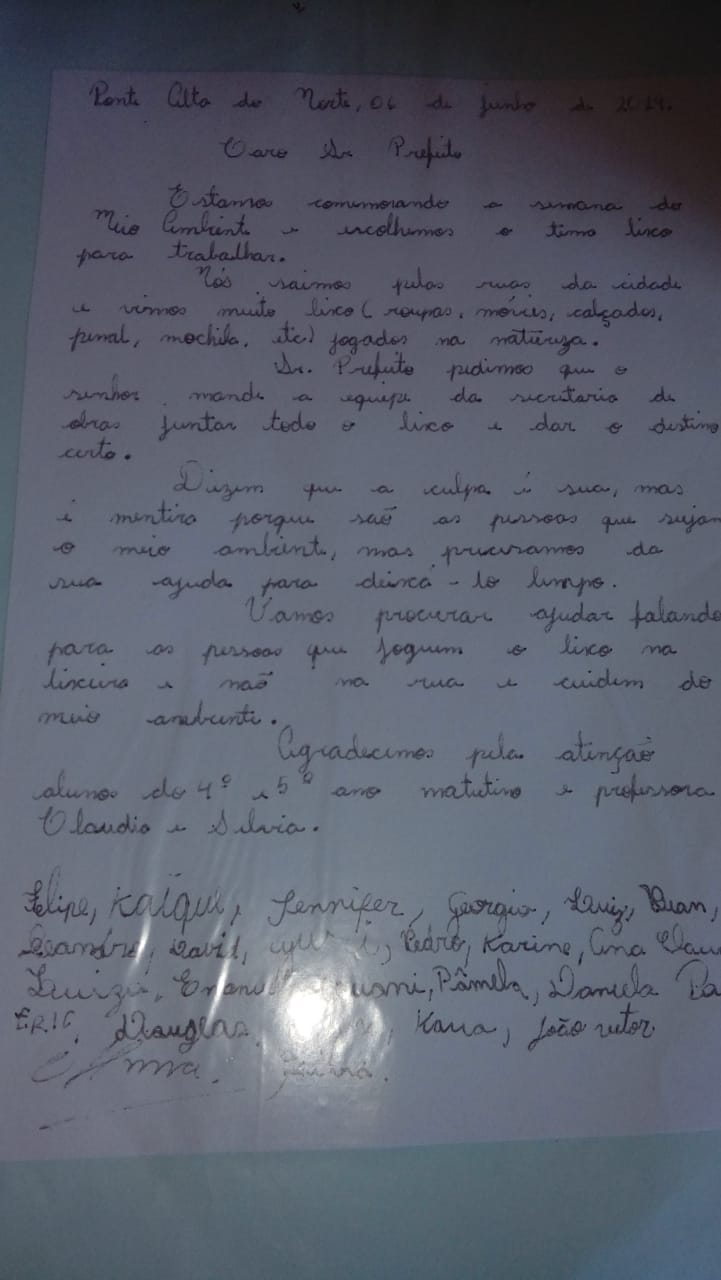 Ponte Alta do Norte, 06 de junho de
Caro Sr. Prefeito
Estamos comemorando a semana do
Meio Ambiente e escolhemos o tema lixo
para trabalhar.
Nós saímos pelas ruas da cidade
e vimos muito lixo (roupas, móveis, calçados,
penal, mochila, etc) jogados na natureza.
Sr. Prefeito pedimos que o
senhor mande a equipe da secretaria de
obras juntar todo o lixo e dar o destino
certo.
Dizem que a culpa é sua, mas
é mentira porque são as pessoas que sujam
o meio ambiente, mas precisamos da
sua ajuda para deixá-lo limpo.
Vamos procurar ajudar falando
para as pessoas que joguem o lixo na
lixeira e não na rua e cuidem do
meio ambiente.
Agradecemos pela atenção
alunos do 4º e 5º ano matutino e professora
Claudia e Silvia.
Felipe, Kaíque, Jennifer, Georgia, Luiz, Ruan,
Leandro, David, Pedro, Karine, Ana
Luiza, Pâmela, Daniela
ERIC, Douglas, Kaua, João vitor